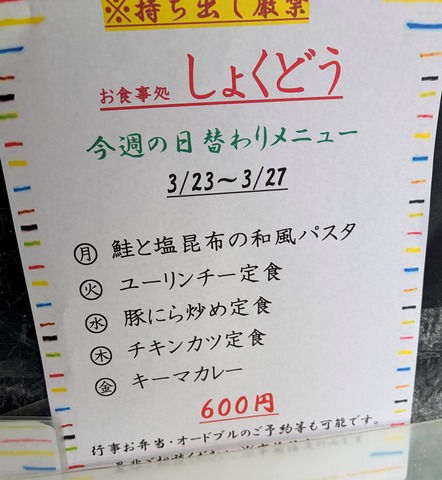 ※持ち出し厳禁
お食事処 しょくどう
今週の日替わりメニュー
3/23～3/27
月 鮭と塩昆布の和風パスタ
火 ユーリンチー定食
水 豚にら炒め定食
木 チキンカツ定食
金 キーマカレー
600円
行事お弁当・オードブルのご予約等も可能です。